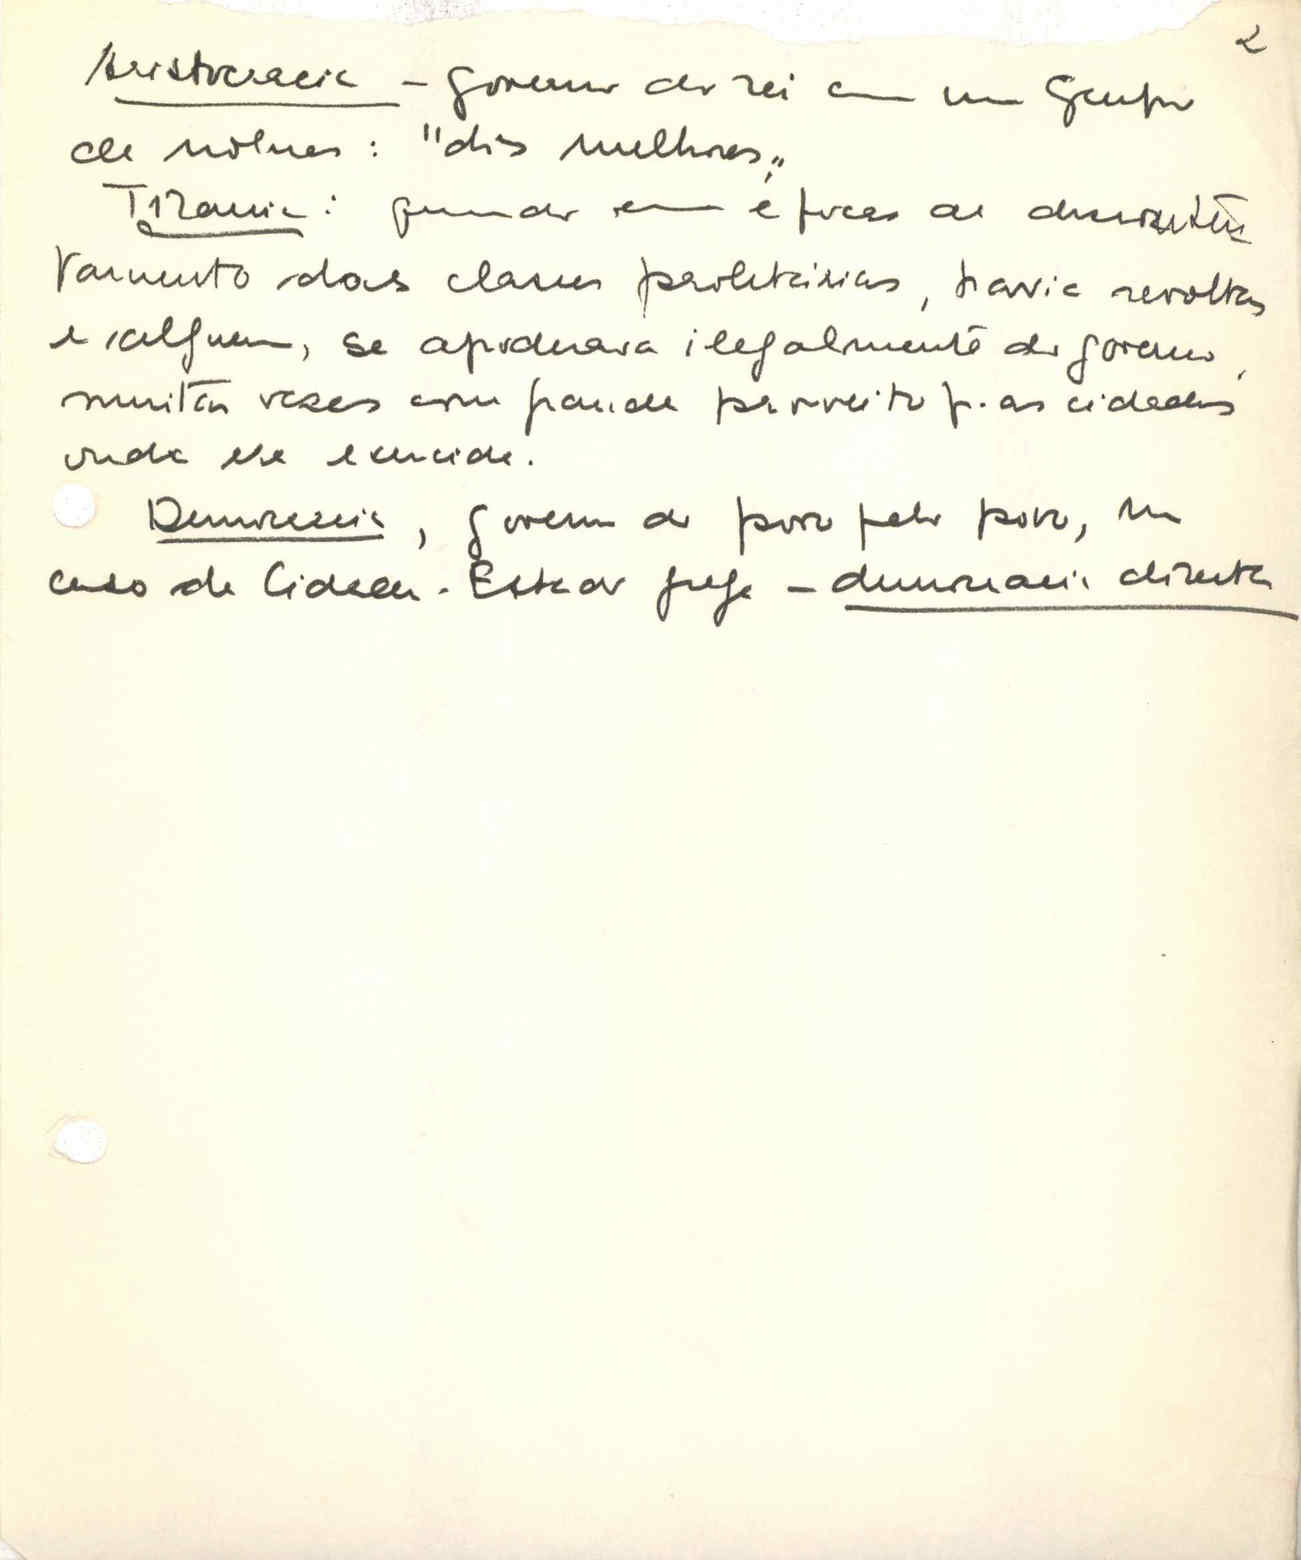 2
Aristocracia - governo do rei com um Grupo
de nobres: "dos melhores"
Tirania: quando em épocas de descontен
tamento das classes proletárias, havia revoltas
e alguem, se apoderava ilegalmente do governo,
muitas vezes com grande proveito p. as cidades
onde era exercida.
Democracia, governo do povo pelo povo, no
caso da Cidade-Estado grega - democracia directa